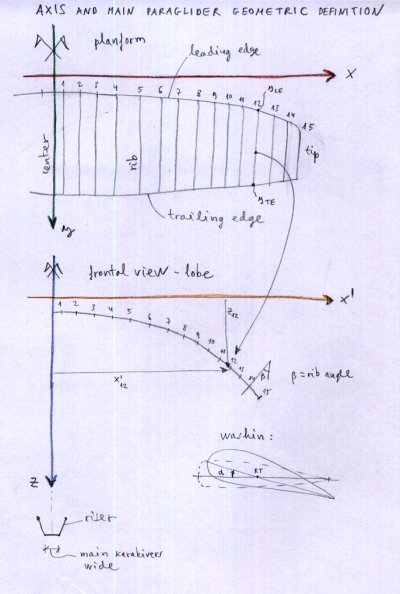 AXIS AND MAIN PARAGLIDER GEOMETRIC DEFINITION
planform
leading edge
x
1 2 3 4 5 6 7 8 9 10 11 12 13 14 15
yLE
center
rib
tip
yTE
y
trailing edge
frontal view - lobe
x'
1 2 3 4 5 6 7 8 9 10 11 12 13 14 15
z12
x'12
β
β = rib angle
washin:
α
RT
z
riser
main karabiners
wide